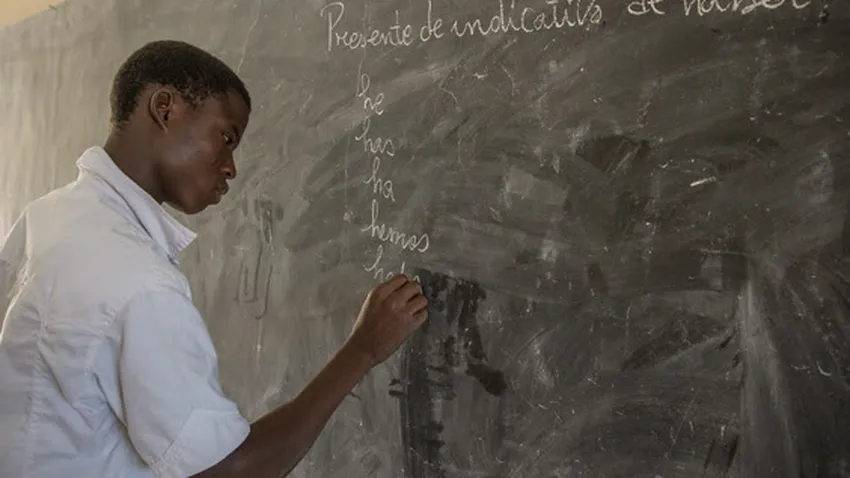 Presente de indicativo de haber
he
has
ha
hemos